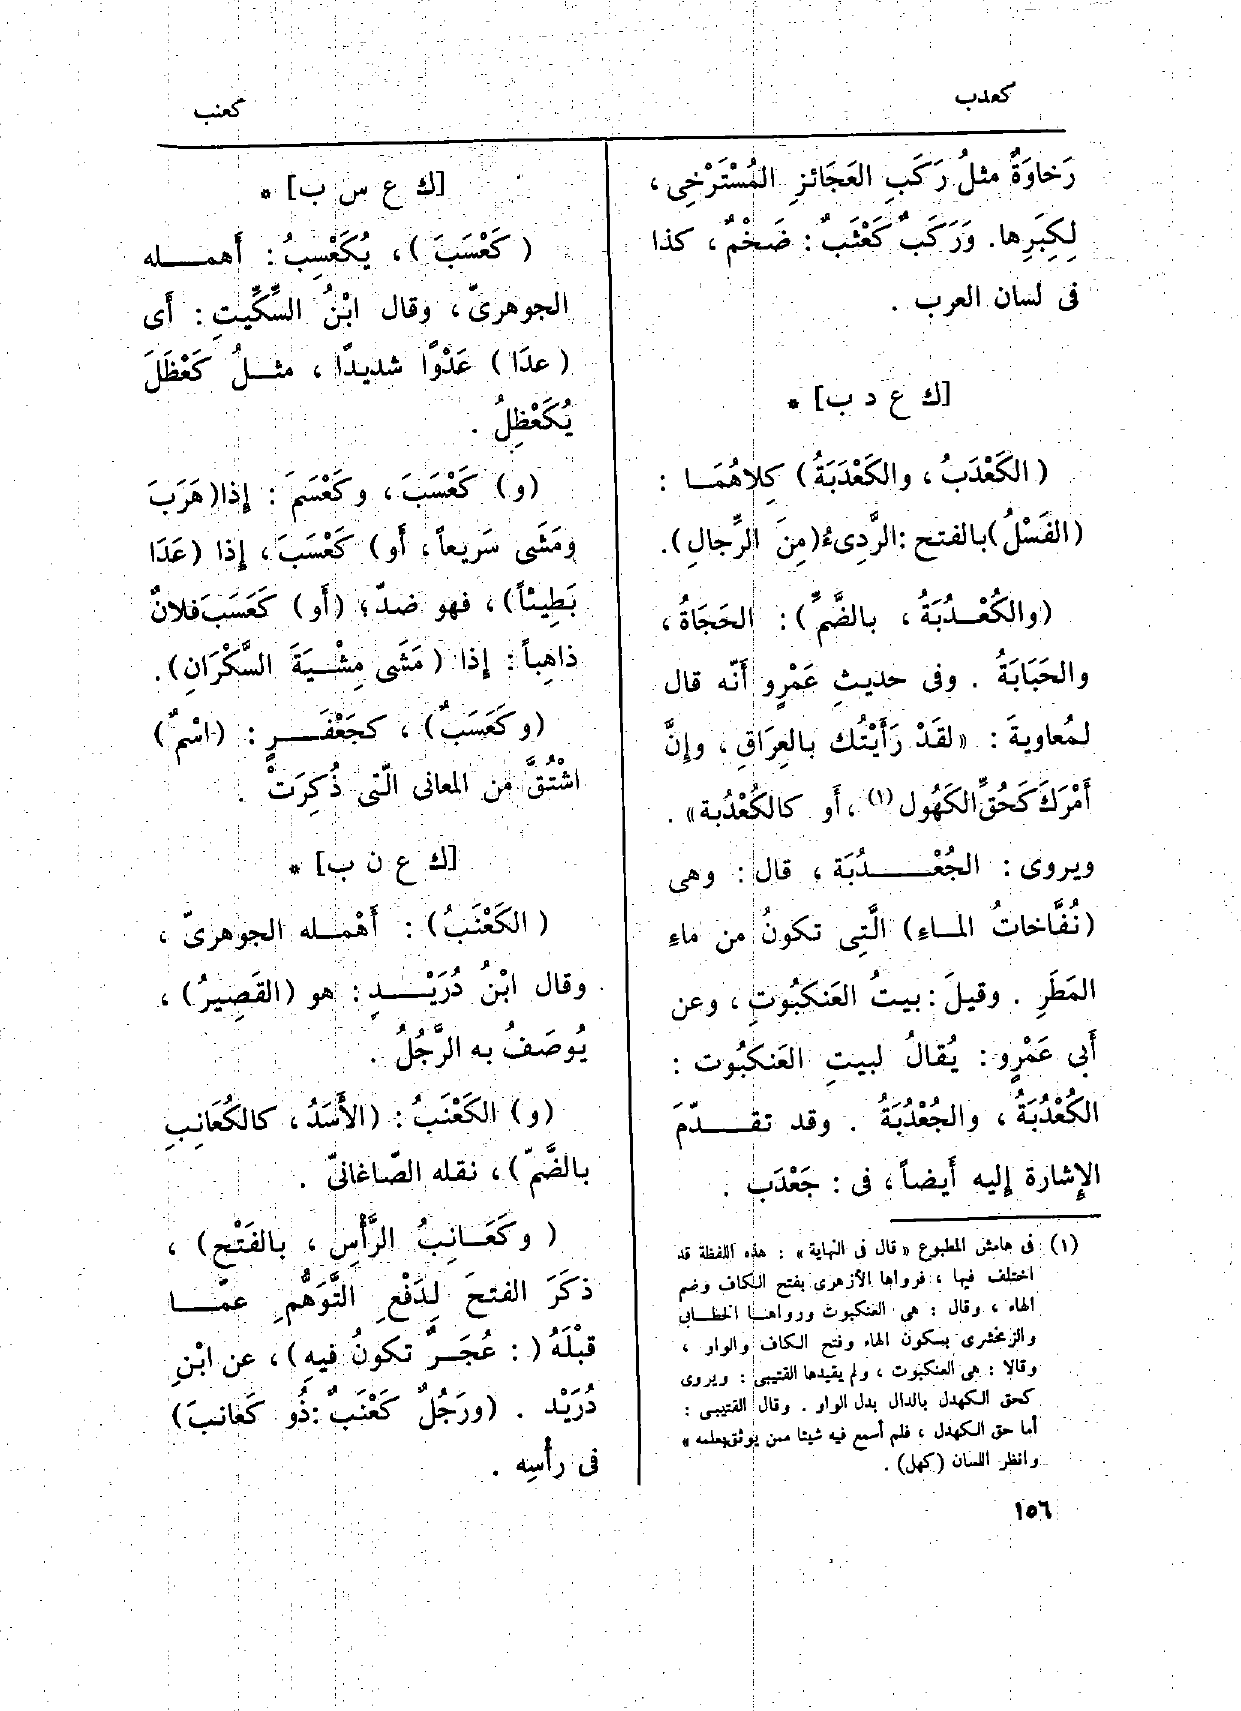 كعدب
كعنب
رَخاوَةٌ مثلُ رَكَبِ العَجَائزِ المُسْتَرْخِى ،
لِكِبَرِها. وَرَكَبٌ كَعْثَبٌ : ضَخْمٌ ، كذا
فى لسان العرب .
[ك ع د ب] *
(الكَعْدَبُ ، والكَعْدَبَةُ) كِلاهُمَــا :
(الفَسْلُ)بالفتح :الرَّدِىءُ(مِنَ الرِّجالِ).
(والكُعْــدُبَةُ ، بالضَّمِّ) : الحَجَاةُ ،
والحَبَابَةُ . وفى حديثِ عَمْرٍو أَنّه قال
لمُعاويةَ : «لقَدْ رَأَيْتُك بالعِرَاقِ ، وإِنَّ
أَمْرَكَ كَحُقِّ الكَهُول (١) ، أَو كالكُعْدُبة» .
ويروى : الجُعْــــدُبَة ، قال : وهى
(نُفَّاخاتُ المــاءِ) الَّتِى تكونُ من ماءِ
المَطَرِ . وقيلَ : بيتُ العَنكبُوتِ ، وعن
أَبى عَمْرٍو : يُقالُ لبيتِ العَنكبُوت :
الكُعْدُبَةُ ، والجُعْدُبَةُ . وقد تقــــدّمَ
الإِشارة إِليه أَيضاً ، فى : جَعْدَب .
(١) فى هامش المطبوع « قال فى النهاية » : هذه اللفظة قد
اختلف فيها ، فرواها الأزهرى بفتح الكاف وضم
الهاء ، وقال : هى العنكبوث ورواهــا الخطــابى
والزمخشرى بسكون الهاء وفتح الكاف والواو ،
وقالا : هى العنكبوت ، ولم يقيدها القتيبى : ويروى
كحق الكهدل بالدال بدل الواو . وقال القتيبى :
أما حق الكهدل ، فلم أسمع فيه شيئا ممن يوثق بعلمه »
وانظر اللسان (كهل) .
[ك ع س ب] *
(كَعْسَبَ) ، يُكَعْسِبُ : أَهمــــله
الجوهرىّ ، وقال ابْنُ السِّكِّيتِ : أَى
(عدَا) عَدْوًا شديدًا ، مثــلُ كَعْظَلَ
يُكَعْظِلُ .
(و) كَعْسَبَ ، وكَعْسَمَ : إِذا(هَرَبَ
ومَشَى سَرِيعاً ، أَو) كَعْسَبَ ، إِذا (عَدَا
بَطِيئاً) ، فهو ضدّ ؛ (أَو) كَعَسَبَ فلانٌ
ذاهِباً : إِذا (مَشَى مِشْــيَةَ السَّكْرَانِ).
(وكَعَسَبٌ) ، كجَعْفَــــرٍ : (اسْمٌ)
اشْتُقَّ من المعانى الّتى ذُكِرَتْ .
[ك ع ن ب] *
(الكَعْنَبُ) : أَهْمــله الجوهرىّ ،
وقال ابْنُ دُرَيْــــدٍ : هو (القَصِيرُ) ،
يُوصَفُ به الرَّجُلُ .
(و) الكَعْنَبُ : (الأَسَدُ ، كالكُعَانِبِ
بالضَّمّ) ، نقله الصّاغانىّ .
(وكَعَــانِبُ الرَّأْسِ ، بالفَتْح) ،
ذكَرَ الفتحَ لِدَفْعِ التَّوَهُّمِ عمّــــا
قبْلَهُ ( : عُجَــرٌ تكونُ فيهِ) ، عن ابْنِ
دُرَيْد . (ورَجُلٌ كَعْنَبٌ : ذُو كَعانبَ)
فى رأْسِه .
١٥٦